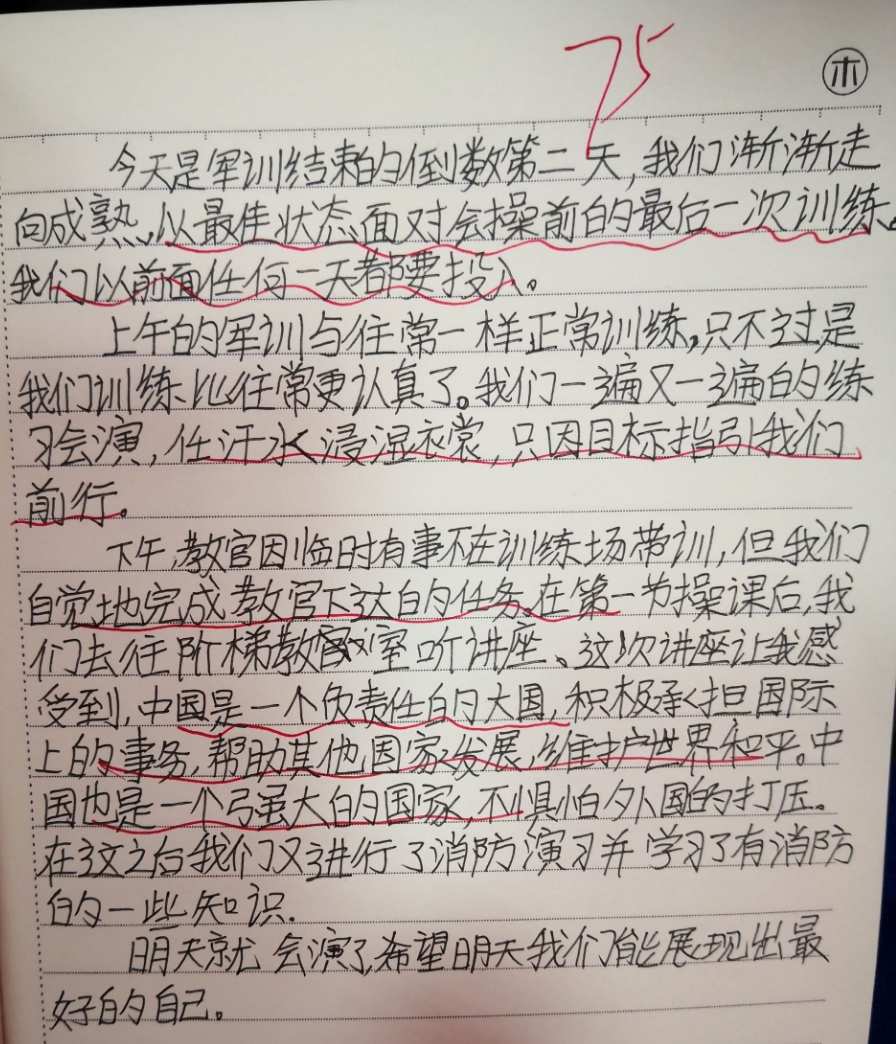 75
木
今天是军训结束的倒数第二天,我们渐渐走
向成熟,以最佳状态面对会操前的最后一次训练。
我们以前面任何一天都要投入。
上午的军训与往常一样正常训练,只不过是
我们训练比往常更认真了。我们一遍又一遍的练
习会演,任汗水浸湿衣裳,只因目标指引我们
前行。
下午,教官因临时有事不在训练场带训,但我们
自觉地完成教官下达的任务。在第一节操课后,我
们去往阶梯教室听讲座、这次讲座让我感
受到,中国是一个负责任的大国,积极承担国际
上的事务,帮助其他国家发展,维护世界和平。中
国也是一个强大的国家,不惧怕外国的打压。
在这之后我们又进行了消防演习并学习了有消防
的一些知识.
明天就会演了,希望明天我们能展现出最
好的自己。